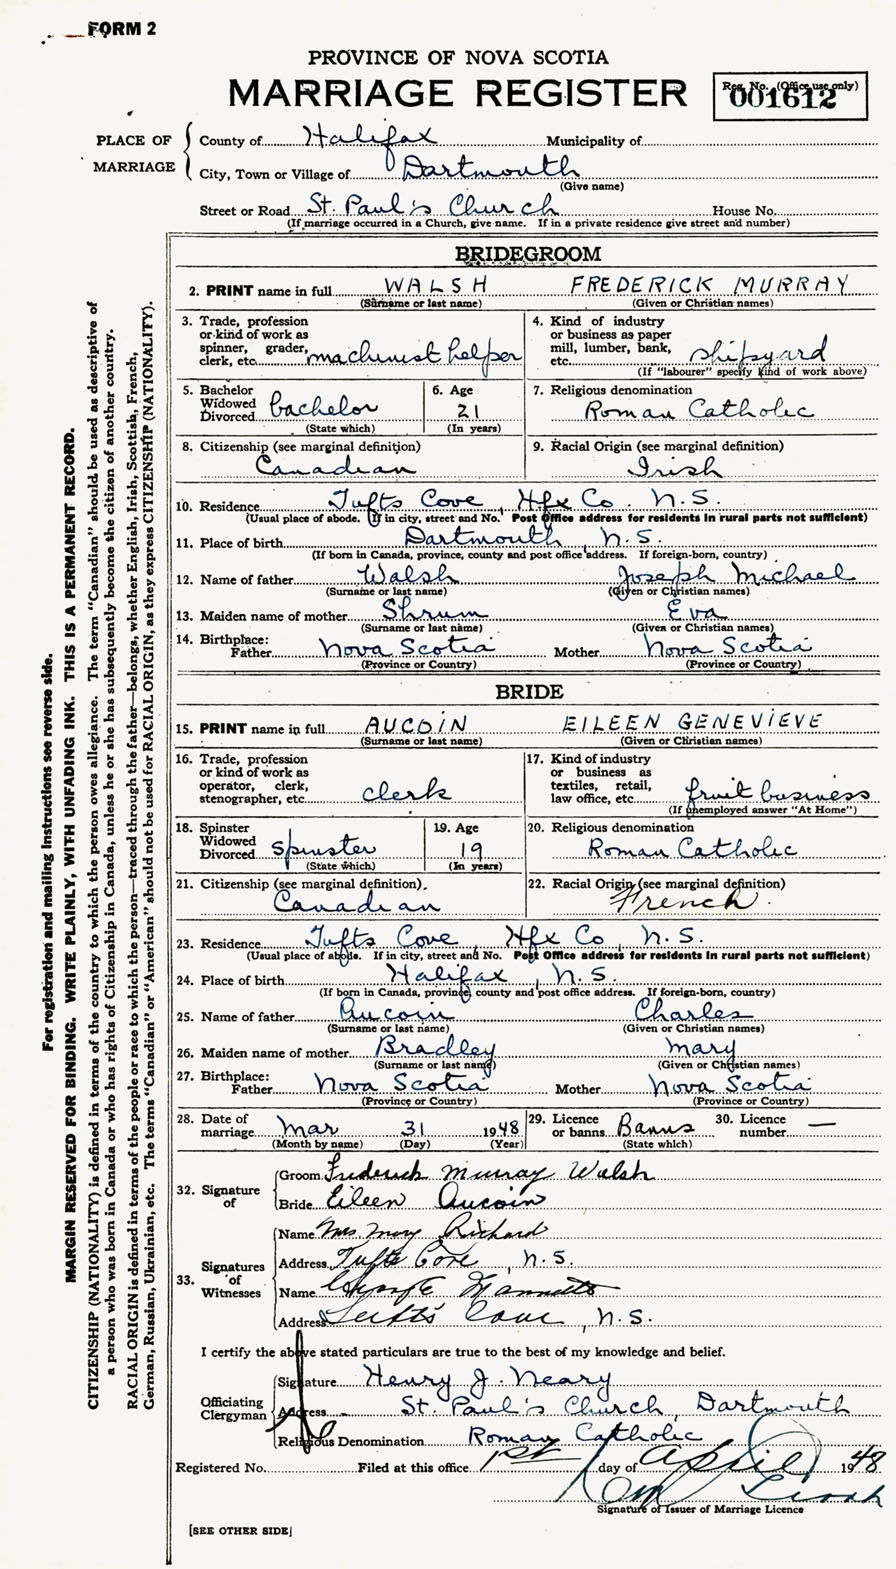 FORM 2
PROVINCE OF NOVA SCOTIA
MARRIAGE REGISTER
Reg. No. (Office use only)
001612
PLACE OF MARRIAGE
County of Halifax Municipality of
City, Town or Village of Dartmouth
(Give name)
Street or Road St. Paul's Church House No.
(If marriage occurred in a Church, give name. If in a private residence give street and number)
BRIDEGROOM
2. PRINT name in full WALSH FREDERICK MURRAY
(Surname or last name) (Given or Christian names)
3. Trade, profession or kind of work as spinner, grader, clerk, etc. machinist helper
4. Kind of industry or business as paper mill, lumber, bank, etc. shipyard
(If "labourer" specify kind of work above)
5. Bachelor Widowed Divorced bachelor
(State which)
6. Age 21
(In years)
7. Religious denomination
Roman Catholic
8. Citizenship (see marginal definition)
Canadian
9. Racial Origin (see marginal definition)
Irish
10. Residence Tufts Cove, Hfx Co. N.S.
(Usual place of abode. If in city, street and No. Post Office address for residents in rural parts not sufficient)
11. Place of birth Dartmouth, N.S.
(If born in Canada, province, county and post office address. If foreign-born, country)
12. Name of father Walsh Joseph Michael
(Surname or last name) (Given or Christian names)
13. Maiden name of mother Shrum Eva
(Surname or last name) (Given or Christian names)
14. Birthplace: Father Nova Scotia Mother Nova Scotia
(Province or Country) (Province or Country)
BRIDE
15. PRINT name in full AUCOIN EILEEN GENEVIEVE
(Surname or last name) (Given or Christian names)
16. Trade, profession or kind of work as operator, clerk, stenographer, etc. clerk
17. Kind of industry or business as textiles, retail, law office, etc. fruit business
(If unemployed answer "At Home")
18. Spinster Widowed Divorced spinster
(State which)
19. Age 19
(In years)
20. Religious denomination
Roman Catholic
21. Citizenship (see marginal definition).
Canadian
22. Racial Origin (see marginal definition)
French.
23. Residence Tufts Cove, Hfx Co, N.S.
(Usual place of abode. If in city, street and No. Post Office address for residents in rural parts not sufficient)
24. Place of birth Halifax, N.S.
(If born in Canada, province, county and post office address. If foreign-born, country)
25. Name of father Aucoin Charles
(Surname or last name) (Given or Christian names)
26. Maiden name of mother Bradley Mary
(Surname or last name) (Given or Christian names)
27. Birthplace: Father Nova Scotia Mother Nova Scotia
(Province or Country) (Province or Country)
28. Date of marriage Mar 31 1948
(Month by name) (Day) (Year)
29. Licence or banns Banns
(State which)
30. Licence number —
32. Signature of
Groom Frederick Murray Walsh
Bride Eileen Aucoin
33. Signatures of Witnesses
Name Mrs. Mary Richard
Address Tufts Cove, N.S.
Name
Address Tufts Cove, N.S.
I certify the above stated particulars are true to the best of my knowledge and belief.
Officiating Clergyman
Signature Henry J. Neary
Address St. Paul's Church, Dartmouth
Religious Denomination Roman Catholic
Registered No. Filed at this office 1st day of April 1948
Signature of Issuer of Marriage Licence
[SEE OTHER SIDE]
For registration and mailing instructions see reverse side.
MARGIN RESERVED FOR BINDING. WRITE PLAINLY, WITH UNFADING INK. THIS IS A PERMANENT RECORD.
CITIZENSHIP (NATIONALITY) is defined in terms of the country to which the person owes allegiance. The term "Canadian" should be used as descriptive of
a person who was born in Canada or who has rights of Citizenship in Canada, unless he or she has subsequently become the citizen of another country.
RACIAL ORIGIN is defined in terms of the people or race to which the person—traced through the father—belongs, whether English, Irish, Scottish, French,
German, Russian, Ukrainian, etc. The terms "Canadian" or "American" should not be used for RACIAL ORIGIN, as they express CITIZENSHIP (NATIONALITY).